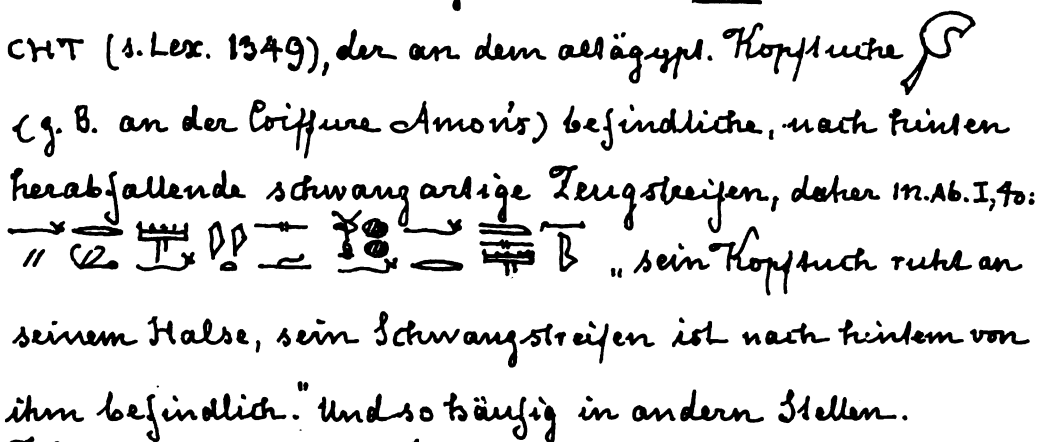 CHT (s. Lex. 1349), der an dem altägypt. Kopftuche
(z. B. an der Coiffure Amon's) befindliche, nach hinten
herabfallende schwanzartige Zeugstreifen, daher M. Ab. I, 40:
„sein Kopftuch ruht an
seinem Halse, sein Schwanzstreifen ist nach hintem von
ihm befindlich." Und so häufig in andern Stellen.